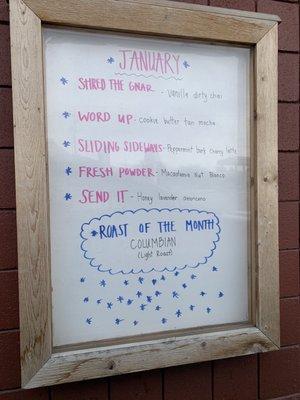 JANUARY
SHRED THE GNAR - Vanilla dirty chai
WORD UP - Cookie butter tan mocha
SLIDING SIDEWAYS - Peppermint bark cherry latte
FRESH POWDER - Macadamia Nut Bianco
SEND IT - Honey lavender americano
ROAST OF THE MONTH
COLUMBIAN
(Light Roast)